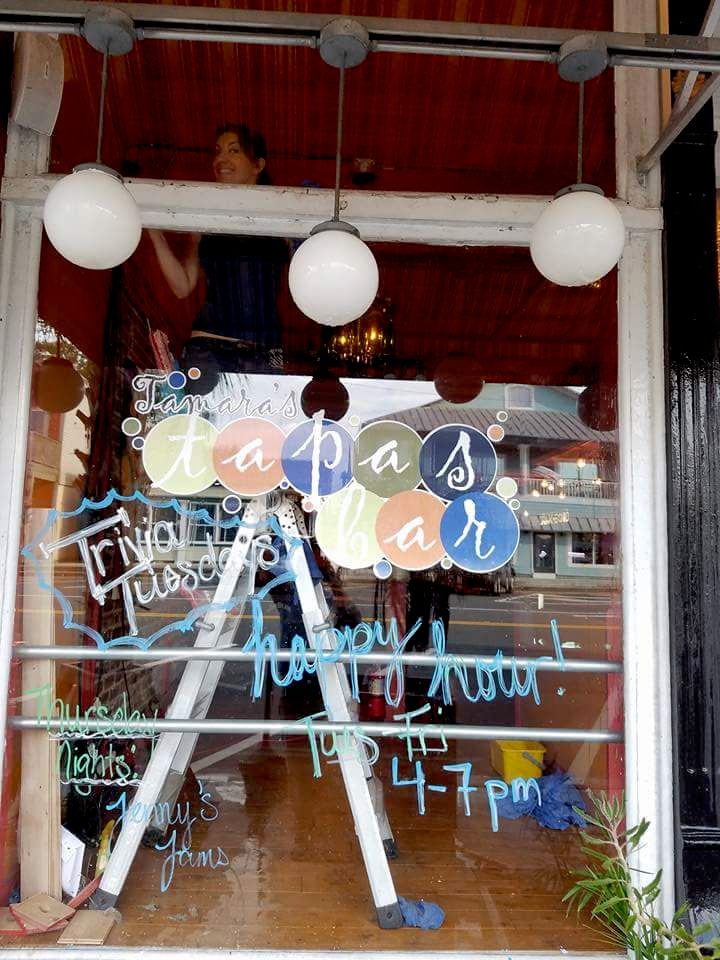 Tamara's
tapas
bar
Trivia
Tuesdays
happy hour!
Tues-Fri
4-7pm
Thursday
Nights!
Jenny's
Jams